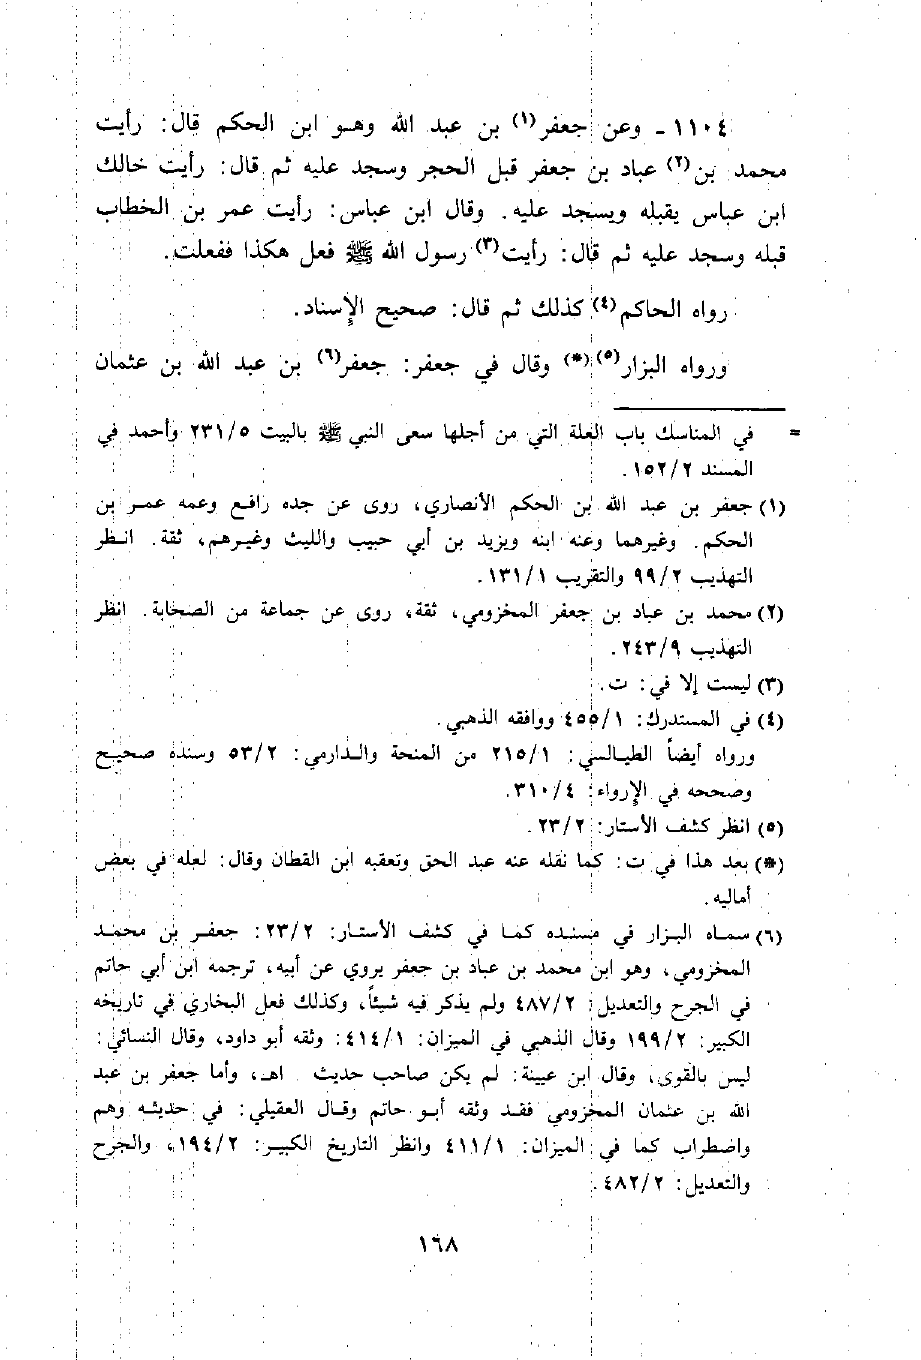 ١١٠٤ ـ وعن جعفر(١) بن عبد الله وهـو ابن الحكم قال: رأيت
محمد بن(٢) عباد بن جعفر قبل الحجر وسجد عليه ثم قال: رأيت خالك
ابن عباس يقبله ويسجد عليه. وقال ابن عباس: رأيت عمر بن الخطاب
قبله وسجد عليه ثم قال: رأيت(٣) رسول الله ﷺ فعل هكذا ففعلت.
رواه الحاكم(٤) كذلك ثم قال: صحيح الإسناد.
ورواه البزار(٥)(*) وقال في جعفر: جعفر(٦) بن عبد الله بن عثمان
= في المناسك باب العلة التي من أجلها سعى النبي ﷺ بالبيت ٢٣١/٥ وأحمد في
المسند ١٥٢/٢.
(١) جعفر بن عبد الله بن الحكم الأنصاري، روى عن جده رافع وعمه عمر بن
الحكم. وغيرهما وعنه ابنه ويزيد بن أبي حبيب والليث وغيرهم، ثقة. انظر
التهذيب ٩٩/٢ والتقريب ١٣١/١.
(٢) محمد بن عباد بن جعفر المخزومي، ثقة، روى عن جماعة من الصحابة. انظر
التهذيب ٢٤٣/٩.
(٣) ليست إلا في: ت.
(٤) في المستدرك: ٤٥٥/١ ووافقه الذهبي.
ورواه أيضاً الطيالسي: ٢١٥/١ من المنحة والدارمي: ٥٣/٢ وسنده صحيح
وصححه في الإرواء: ٣١٠/٤.
(٥) انظر كشف الأستار: ٢٣/٢.
(*) بعد هذا في ت: كما نقله عنه عبد الحق وتعقبه ابن القطان وقال: لعله في بعض
أماليه.
(٦) سماه البزار في مسنده كما في كشف الأستار: ٢٣/٢: جعفر بن محمد
المخزومي، وهو ابن محمد بن عباد بن جعفر يروي عن أبيه، ترجمه ابن أبي حاتم
في الجرح والتعديل: ٤٨٧/٢ ولم يذكر فيه شيئاً، وكذلك فعل البخاري في تاريخه
الكبير: ١٩٩/٢ وقال الذهبي في الميزان: ٤١٤/١: وثقه أبو داود، وقال النسائي:
ليس بالقوى، وقال ابن عيينة: لم يكن صاحب حديث. اهـ، وأما جعفر بن عبد
الله بن عثمان المخزومي فقد وثقه أبو حاتم وقال العقيلي: في حديثه وهم
واضطراب كما في الميزان: ٤١١/١ وانظر التاريخ الكبير: ١٩٤/٢، والجرح
والتعديل: ٤٨٢/٢.
١٦٨